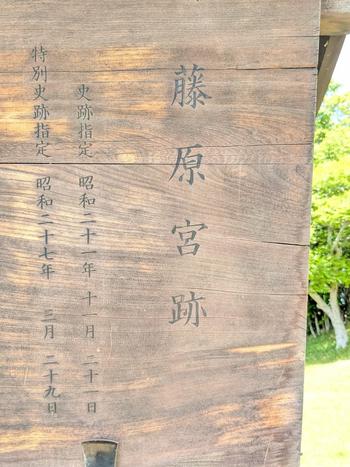 藤原宮跡
史跡指定 昭和二十一年 十一月 二十一日
特別史跡指定 昭和二十七年 三月 二十九日